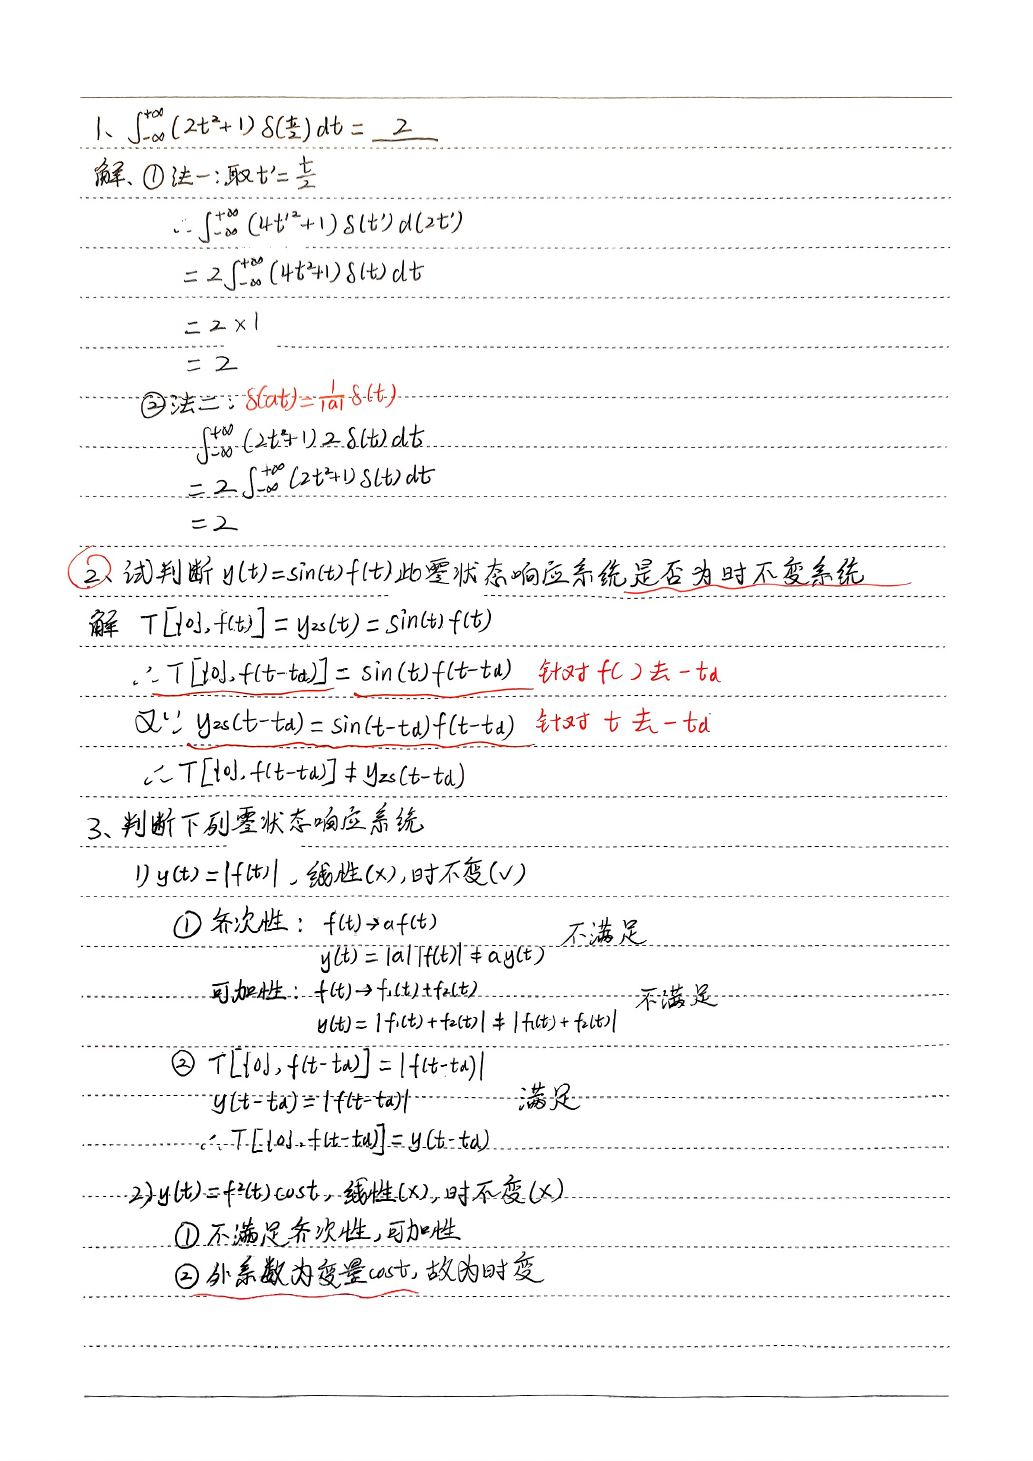 1、∫_{-∞}^{+∞}(2t²+1)δ(t/2)dt = 2
解、①法一:取t'=t/2
∴∫_{-∞}^{+∞}(4t'²+1)δ(t')d(2t')
=2∫_{-∞}^{+∞}(4t²+1)δ(t)dt
=2×1
=2
②法二:δ(at)=1/|a| δ(t)
∫_{-∞}^{+∞}(2t²+1)2δ(t)dt
=2∫_{-∞}^{+∞}(2t²+1)δ(t)dt
=2
2、试判断y(t)=sin(t)f(t)此零状态响应系统是否为时不变系统
解 T[{0},f(t)]=yzs(t)=sin(t)f(t)
∴T[{0},f(t-td)]=sin(t)f(t-td) 针对f( )去-td
又∵yzs(t-td)=sin(t-td)f(t-td) 针对t去-td
∴T[{0},f(t-td)]≠yzs(t-td)
3、判断下列零状态响应系统
1)y(t)=|f(t)|、线性(×),时不变(√)
①齐次性:f(t)→af(t)
y(t)=|a||f(t)|≠ay(t) 不满足
可加性:f(t)→f₁(t)+f₂(t)
y(t)=|f₁(t)+f₂(t)|≠|f₁(t)+f₂(t)| 不满足
②T[{0},f(t-td)]=|f(t-td)|
y(t-td)=|f(t-td)| 满足
∴T[{0},f(t-td)]=y(t-td)
2)y(t)=f²(t)cost,线性(×),时不变(×)
①不满足齐次性,可加性
②外系数为变量cost,故为时变